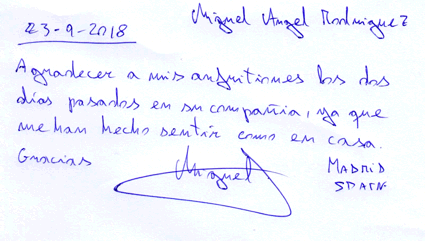 Miguel Angel Rodriguez
23-9-2018
Agradecer a mis anfitriones los dos
días pasados en su compañia, ya que
me han hecho sentir como en casa.
Gracias Miguel MADRID
SPAIN